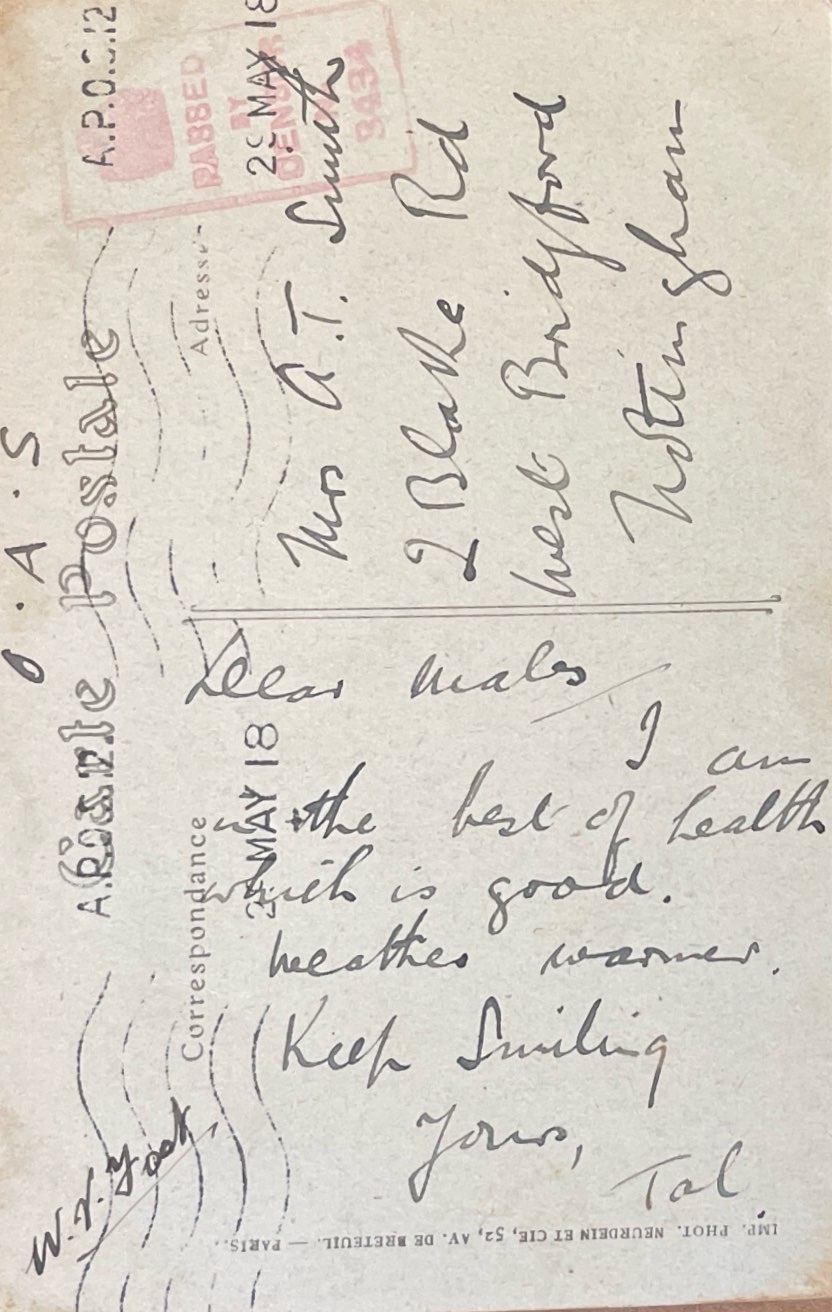 O.A.S
Carte Postale
A.P.O.S.12
28 MAY 18
PASSED
BY
CENSOR
3434
Adresse
Mrs A.T. Smith
2 Blake Rd
West Bridgford
Nottingham
A.P.O.
28 MAY 18
Correspondance
Dear Mabs
I am
in the best of health
which is good.
Weather warmer.
Keep Smiling
Yours,
Tal
IMP. PHOT. NEURDEIN ET CIE, 52, AV. DE BRETEUIL. — PARIS.